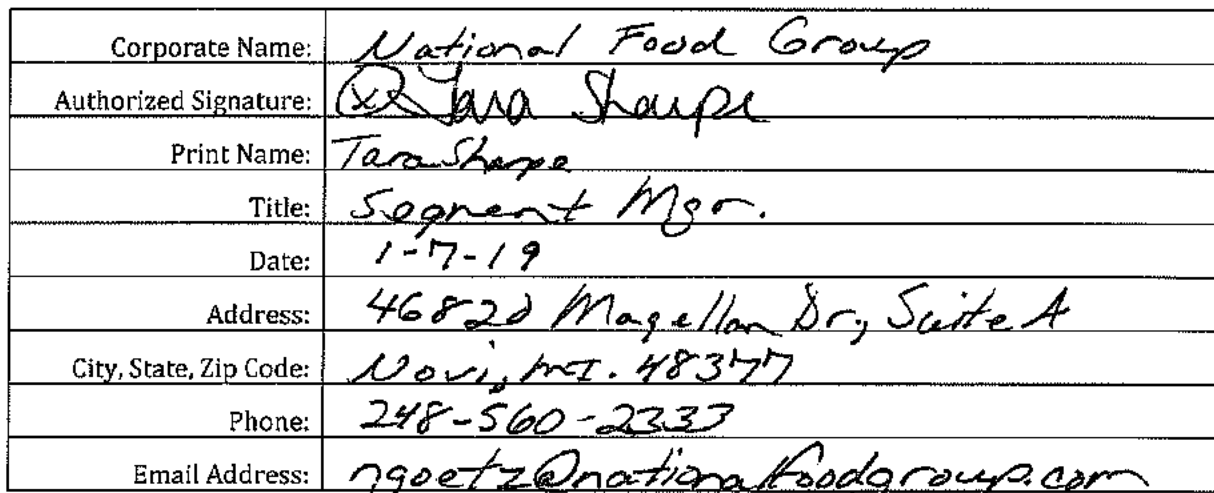 Corporate Name: National Food Group
Authorized Signature: Tara Sharpe
Print Name: Tara Sharpe
Title: Segment Mgr.
Date: 1-7-19
Address: 46820 Magellan Dr., Suite A
City, State, Zip Code: Novi, MI. 48377
Phone: 248-560-2333
Email Address: ngoetz@nationalfoodgroup.com